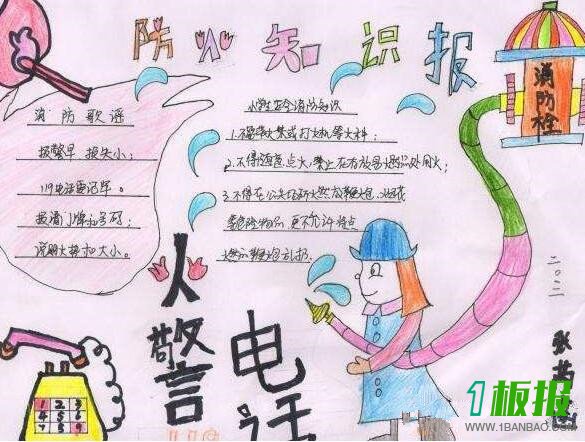 防火知识报
消防歌谣
报警早 损失小;
119电话要记牢。
报清门牌和号码;
说明火势和大小。
小学生安全消防知识
1.不要带火柴或打火机等火种;
2.不得随意点火,禁止在有放易燃品处用火;
3.不得在公共场所燃放鞭炮、
更不允许将点
燃的鞭炮乱扔。
消防栓
火警电话
119
二〇二
张
1板报
WWW.1BANBAO.COM